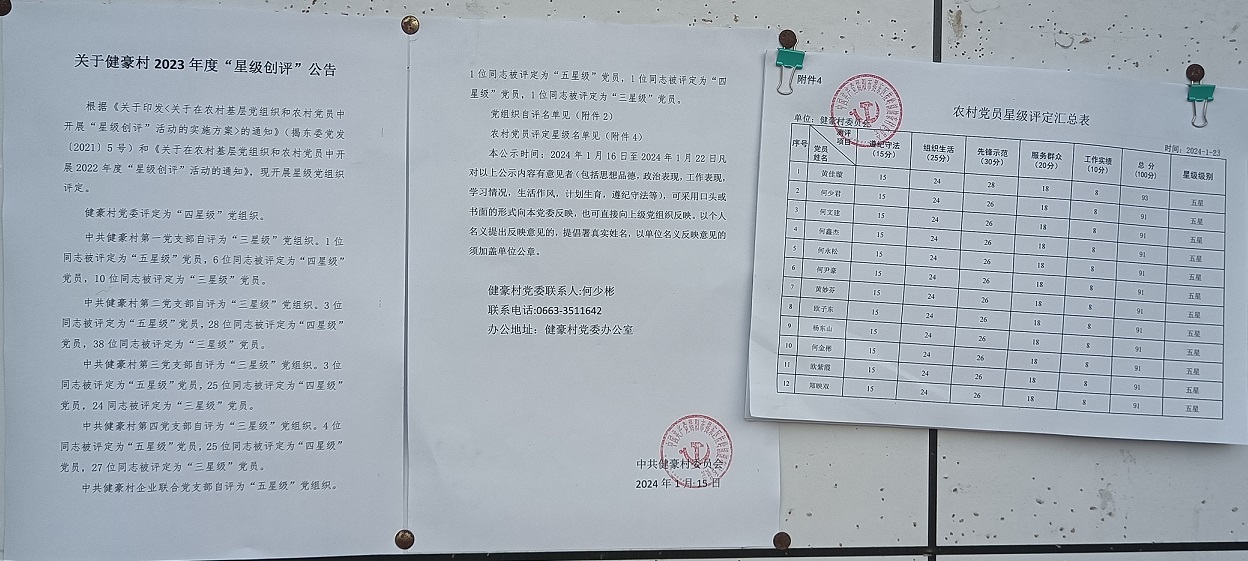 关于健豪村 2023 年度“星级创评”公告
根据《关于印发<关于在农村基层党组织和农村党员中
开展“星级创评”活动的实施方案>的通知》（揭东委党发
〔2021〕5 号）和《关于在农村基层党组织和农村党员中开
展 2022 年度“星级创评”活动的通知》，现开展星级党组织
评定。
健豪村党委评定为“四星级”党组织。
中共健豪村第一党支部自评为“三星级”党组织。1 位
同志被评定为“五星级”党员，6 位同志被评定为“四星级”
党员，10 位同志被评定为“三星级”党员。
中共健豪村第二党支部自评为“三星级”党组织。3 位
同志被评定为“五星级”党员，28 位同志被评定为“四星级”
党员，38 位同志被评定为“三星级”党员。
中共健豪村第三党支部自评为“三星级”党组织。3 位
同志被评定为“五星级”党员，25 位同志被评定为“四星级”
党员，24 位同志被评定为“三星级”党员。
中共健豪村第四党支部自评为“三星级”党组织。4 位
同志被评定为“五星级”党员，25 位同志被评定为“四星级”
党员，27 位同志被评定为“三星级”党员。
中共健豪村企业联合党支部自评为“五星级”党组织。
1 位同志被评定为“五星级”党员，1 位同志被评定为“四
星级”党员，1 位同志被评定为“三星级”党员。
党组织自评名单见（附件 2）
农村党员评定星级名单见（附件 4）
本公示时间：2024 年 1 月 16 日至 2024 年 1 月 22 日凡
对以上公示内容有意见者（包括思想品德，政治表现，工作表现，
学习情况，生活作风，计划生育，遵纪守法等），可采用口头或
书面的形式向本党委反映，也可直接向上级党组织反映。以个人
名义提出反映意见的，提倡署真实姓名，以单位名义反映意见的
须加盖单位公章。
健豪村党委联系人:何少彬
联系电话:0663-3511642
办公地址：健豪村党委办公室
中共健豪村委员会
2024 年 1 月 15 日
附件4
农村党员星级评定汇总表
单位：健豪村委员会
时间：2024-1-23
序号 测评项目 党员姓名 遵纪守法（15分） 组织生活（25分） 先锋示范（30分） 服务群众（20分） 工作实绩（10分） 总 分（100分） 星级级别
1 黄佳璇 15 24 28 18 8 93 五星
2 何少君 15 24 26 18 8 91 五星
3 何文建 15 24 26 18 8 91 五星
4 何鑫杰 15 24 26 18 8 91 五星
5 何永松 15 24 26 18 8 91 五星
6 何尹豪 15 24 26 18 8 91 五星
7 黄妙芬 15 24 26 18 8 91 五星
8 欧子东 15 24 26 18 8 91 五星
9 杨东山 15 24 26 18 8 91 五星
10 何金彬 15 24 26 18 8 91 五星
11 欧紫霞 15 24 26 18 8 91 五星
12 郑映双 15 24 26 18 8 91 五星